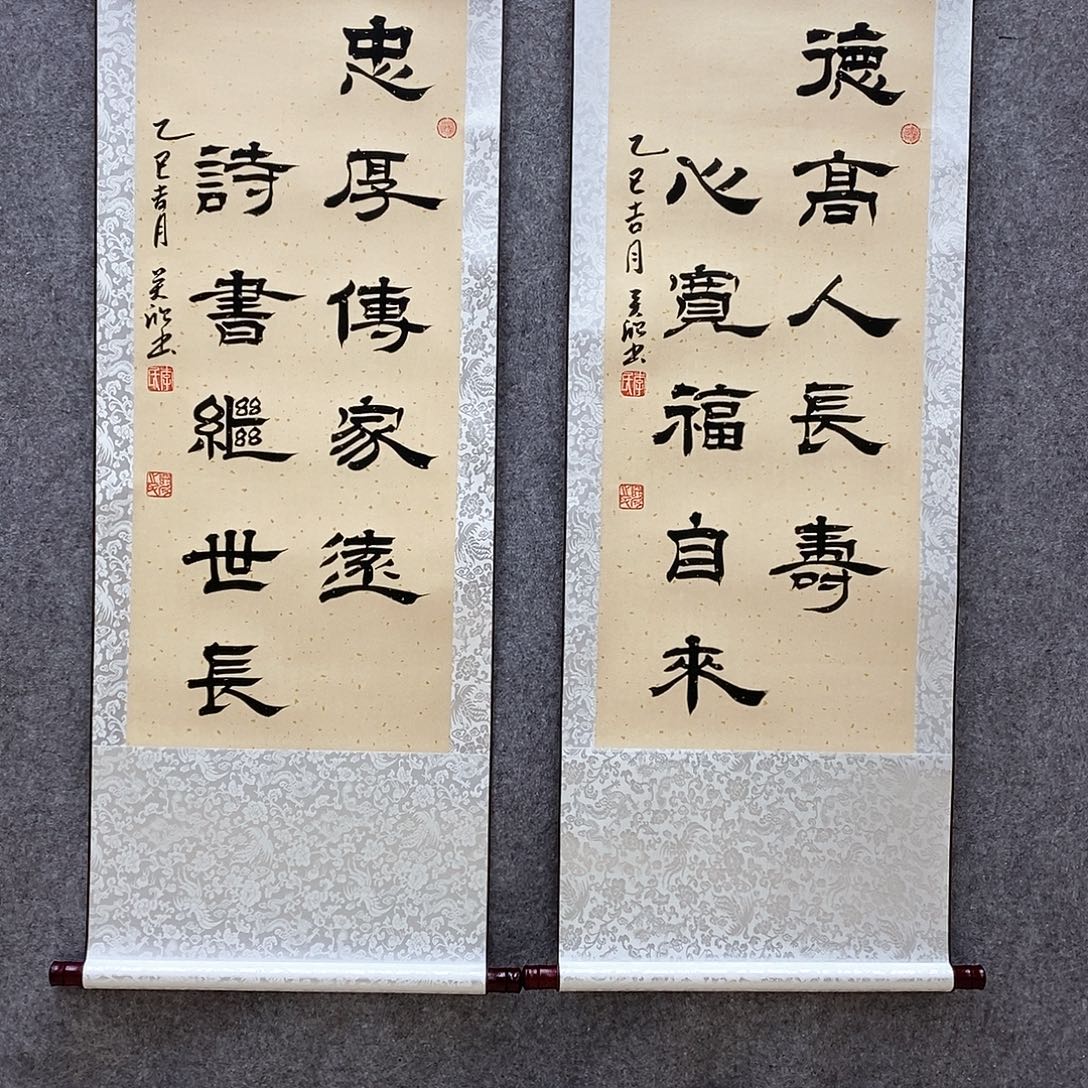 德高人長壽
心寬福自來
乙巳吉月
忠厚傳家遠
詩書繼世長
乙巳吉月